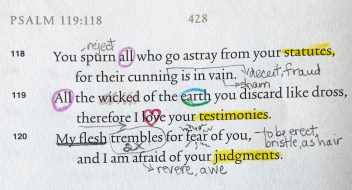 PSALM 119:118 428
reject
118 You spurn all who go astray from your statutes,
for their cunning is in vain. deceit, fraud
sham
119 All the wicked of the earth you discard like dross,
therefore I love your testimonies.
120 My flesh trembles for fear of you, - to be erect,
2x bristle, as hair
and I am afraid of your judgments.
revere, awe